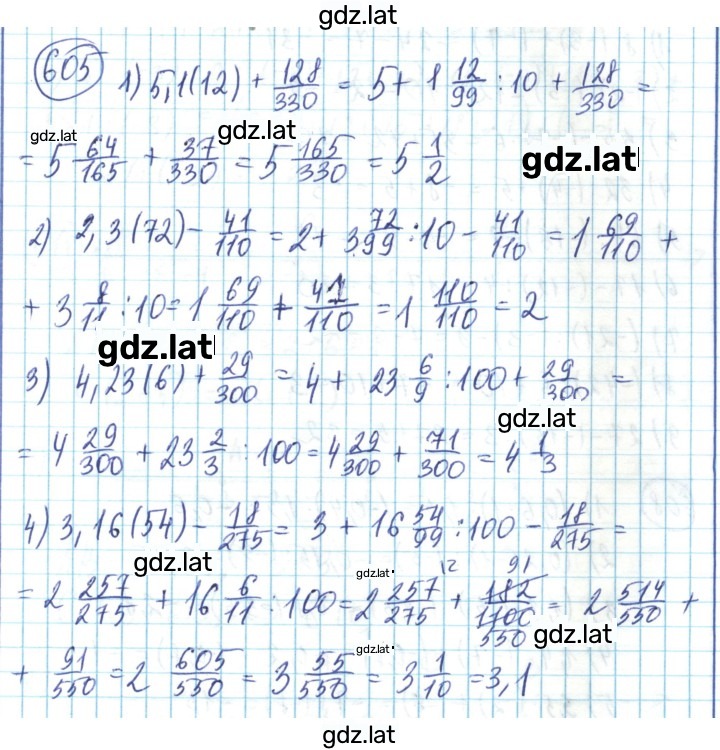 gdz.lat
605 1) 5,1(12) + 128/330 = 5 + 1 12/99 : 10 + 128/330 =
gdz.lat gdz.lat
= 5 64/165 + 37/330 = 5 165/330 = 5 1/2 gdz.lat
2) 2,3(72) - 41/110 = 2 + 3 72/99 : 10 - 41/110 = 1 69/110 +
+ 3 8/11 : 10 = 1 69/110 + 41/110 = 1 110/110 = 2
gdz.lat
3) 4,23(6) + 29/300 = 4 + 23 6/9 : 100 + 29/300 =
gdz.lat
= 4 29/300 + 23 2/3 : 100 = 4 29/300 + 71/300 = 4 1/3
4) 3,16(54) - 18/275 = 3 + 16 54/99 : 100 - 18/275 =
gdz.lat gdz.lat
= 2 257/275 + 16 6/11 : 100 = 2 257/275 /2 + 182/1100 91/550 = 2 514/550 +
gdz.lat
gdz.lat
+ 91/550 = 2 605/550 = 3 55/550 = 3 1/10 = 3,1
gdz.lat